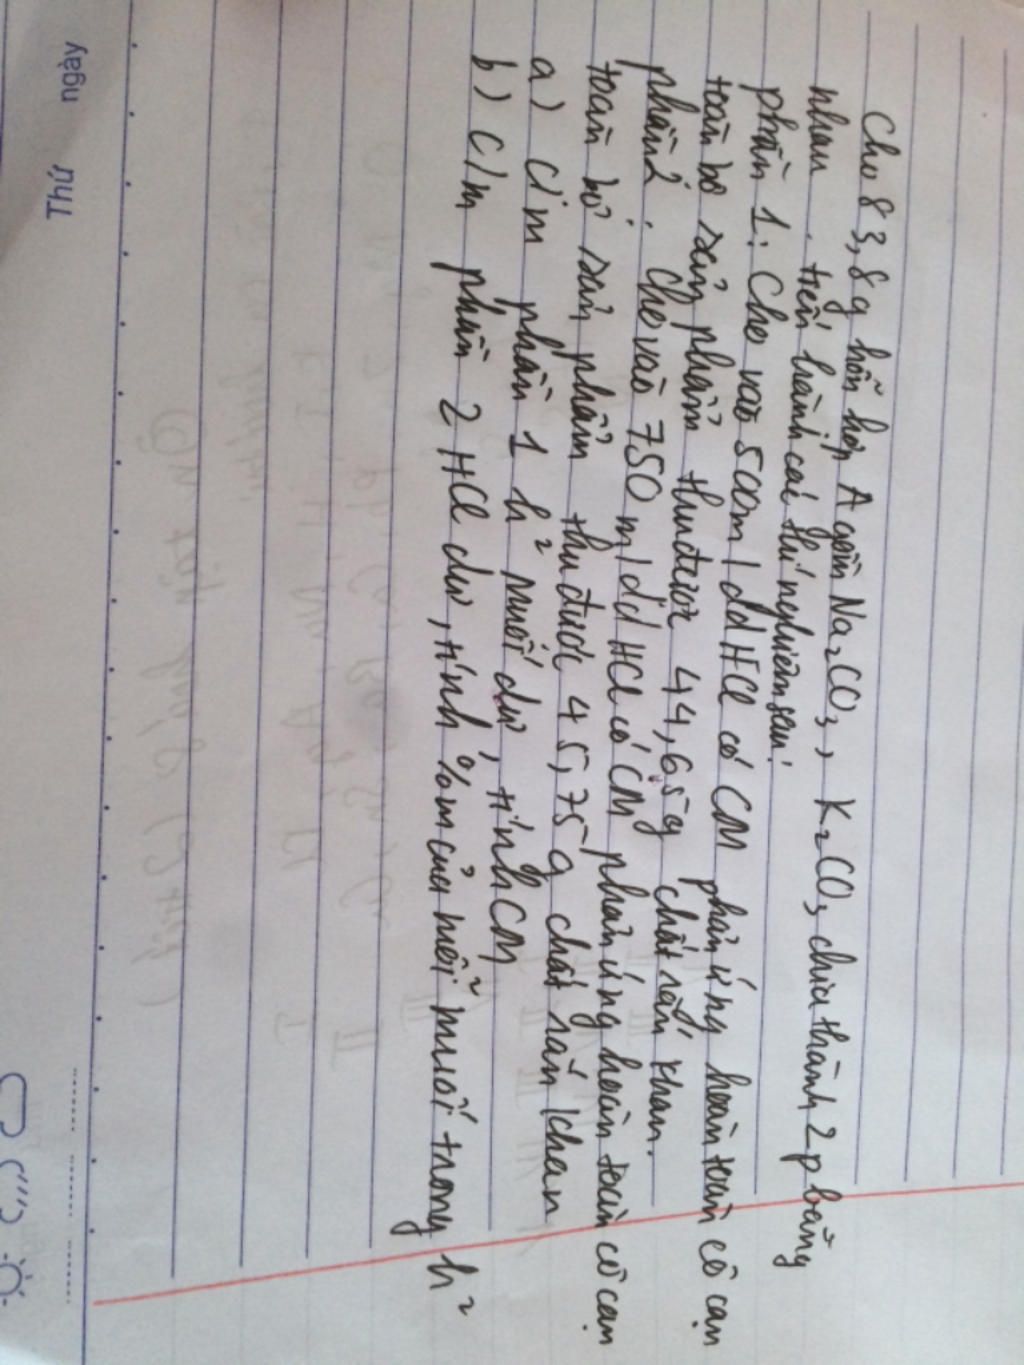 Cho 83,8g hỗn hợp A gồm Na₂CO₃, K₂CO₃ chia thành 2p bằng
nhau. tiến hành các thí nghiệm sau:
phần 1: Cho vào 500ml ddHCl có CM phản ứng hoàn toàn cô cạn
toàn bộ sản phẩm thu được 44,65g chất rắn khan.
phần 2: Cho vào 750ml dd HCl có CM phản ứng hoàn toàn cô cạn
toàn bộ sản phẩm thu được 45,75g chất rắn khan
a) C/m phần 1 h² muối dư, tính CM
b) C/m phần 2 HCl dư, tính %m của mỗi muối trong h²
Thứ ngày